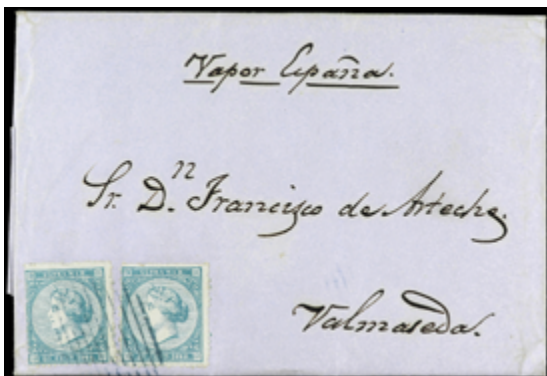 Vapor España.
Sr. D.n Francisco de Arteche,
Valmaseda.